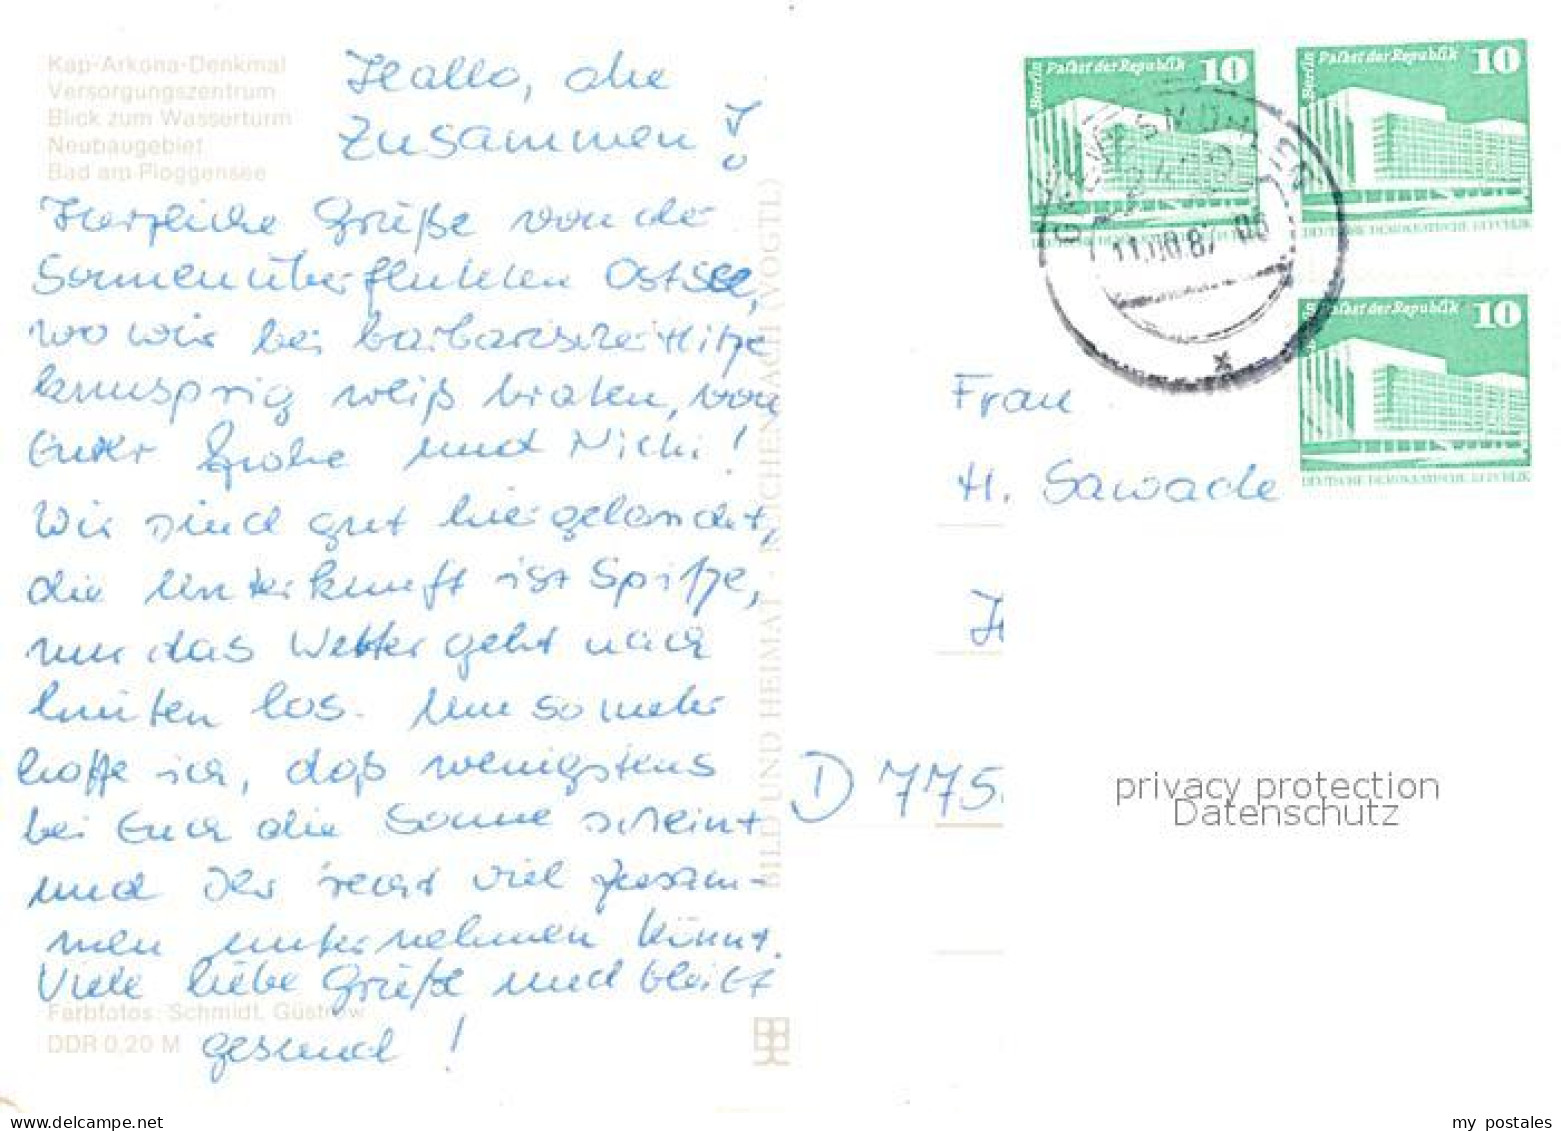 Kap-Arkona-Denkmal
Versorgungszentrum
Blick zum Wasserturm
Neubaugebiet
Bad am Ploggensee
Hallo, alle
zusammen!
Herzliche Grüße von der
Sonnenüberfluteten Ostsee,
wo wir bei barbarischer Hitze
knusprig weiß braten, von
Eurer und Michi!
Wir sind gut hier gelandet,
die Unterkunft ist Spitze,
nur das Wetter geht nach
hinten los. Um so mehr
hoffe ich, daß wenigstens
bei Euch die Sonne scheint
und Ihr recht viel zusam-
men unternehmen könnt.
Viele liebe Grüße und bleibt
gesund!
Farbfotos: Schmidt, Güstrow
DDR 0,20 M
BILD UND HEIMAT · REICHENBACH (VOGTL)
Berlin Palast der Republik 10
DEUTSCHE DEMOKRATISCHE REPUBLIK
Berlin Palast der Republik 10
DEUTSCHE DEMOKRATISCHE REPUBLIK
Berlin Palast der Republik 10
DEUTSCHE DEMOKRATISCHE REPUBLIK
GREVESMÜHLEN
Frau
H. Sawade
H
D 775
privacy protection
Datenschutz
delcampe.net
my_postales